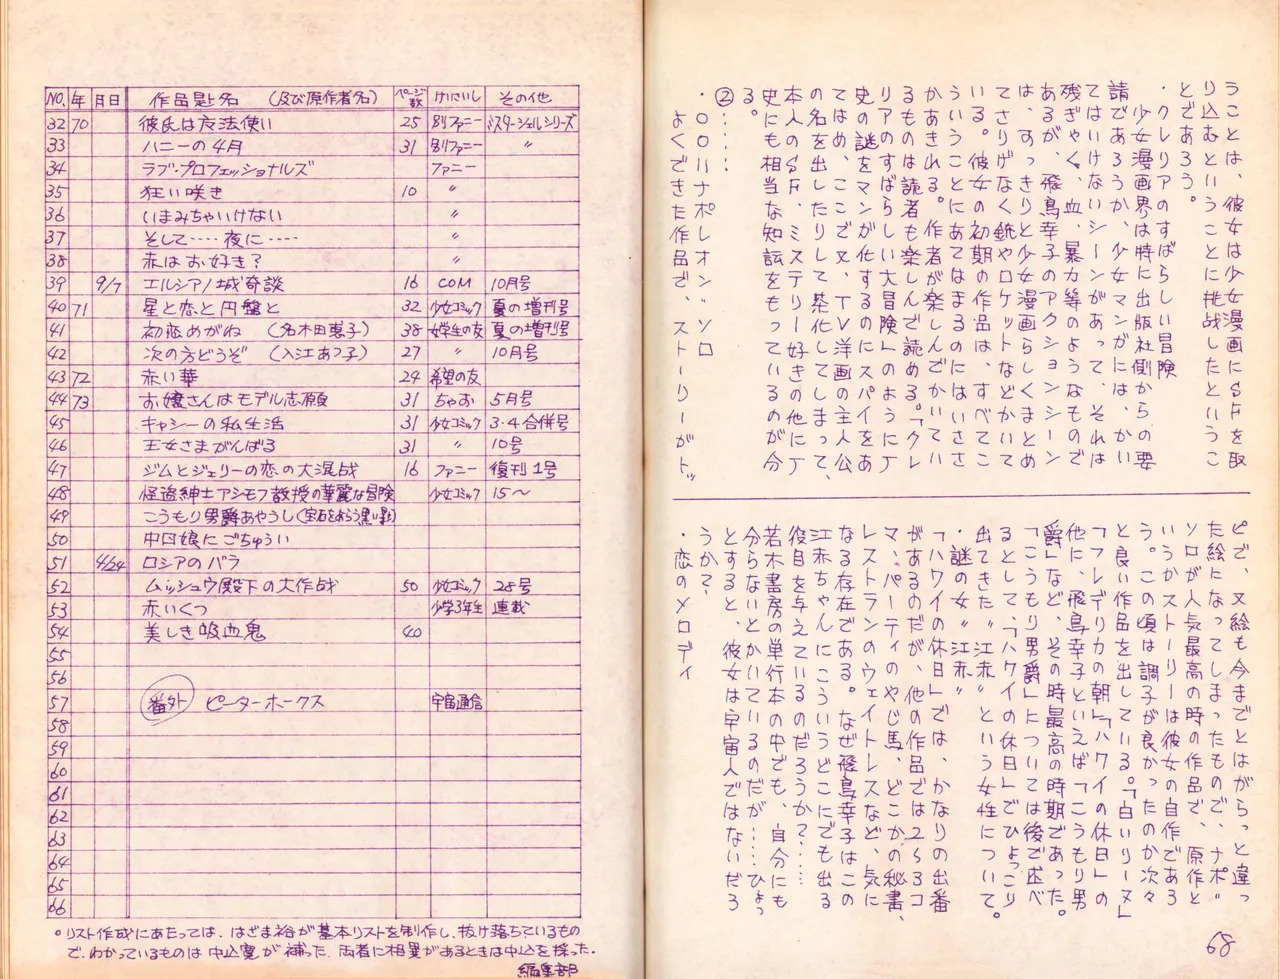 うことは、彼女は少女漫画にSFを取
り込むということに挑戦したというこ
とであろう。
・クレリアのすばらしい冒険
少女漫画界は特に出版社側からの要
請であろうか、少女マンガには、かい
てはいけないシーンがあって、それは
残ぎゃく、血、暴力等のようなもので
あるが、飛鳥幸子のアクションシーン
は、すっきりと少女漫画らしくまとめ
てさりげなく銃やロケットなどかいて
いる。彼女の初期の作品は、すべてこ
ういうことにあてはまるのにはいささ
かあきれる。作者が楽しんでかいてい
るものは読者も楽しんで読める。「クレ
リアのすばらしい大冒険」のように厂
史の謎をマンガ化するのにスパイをあ
てはめ、ここで又、TV洋画の主人公
の名を出したりして茶化してしまって、
本人のSF、ミステリー好きの他に厂
史にも相当な知識をもっているのが分
る。
②……
・〇〇ハナポレオン〃ソロ
よくできた作品で、ストーリーがト〃
ピで、又絵も今までとはがらっと違っ
た絵になってしまったもので、ナポ〃
ソロが人気最高の時の作品で、原作と
いうかストーリーは彼女の自作であろ
う。この頃は調子が良かったのか次々
と良い作品を出している。「白いリーヌ」
「フレデリカの朝」「ハワイの休日」の
他に、飛鳥幸子といえば「こうもり男
爵」など、その時最高の時期であった。
「こうもり男爵」については後で述べ
るとして、「ハワイの休日」でひょっこり
出てきた〃江赤〃という女性について。
・謎の女〃江赤〃
「ハワイの休日」では、かなりの出番
があるのだが、他の作品では2〜3コ
マ、パーティのやじ馬、どこかの秘書、
レストランのウェイトレスなど、気に
なる存在である。なぜ飛鳥幸子はこの
江赤ちゃんにこういうどこにでも出る
役目を与えているのだろうか?……
若木書房の単行本の中でも、自分にも
分らないとかいているのだが……ひょっ
とすると、彼女は宇宙人ではないだろ
うか?
・恋のメロディ
68
NO. 年 月日 作品題名 (及び原作者名) ページ数 けいさいし その他
32 70 彼氏は友法使い 25 別ファニー ミスターシェルシリーズ
33 ハニーの4月 31 別ファニー 〃
34 ラブ・プロフェッショナルズ ファニー
35 狂い咲き 10 〃
36 いまみちゃいけない 〃
37 そして‥‥夜に‥‥ 〃
38 赤はお好き? 〃
39 9/7 エルシアノ城奇談 16 COM 10月号
40 71 星と恋と円盤と 32 少女コミック 夏の増刊号
41 初恋めがね (名木田恵子) 38 女学生の友 夏の増刊号
42 次の方どうぞ (入江あつ子) 27 〃 10月号
43 72 赤い華 24 希望の友
44 73 お嬢さんはモデル志願 31 ちゃお 5月号
45 キャシーの私生活 31 少女コミック 3・4合併号
46 王女さまがんばる 31 〃 10号
47 ジムとジェリーの恋の大混戦 16 ファニー 復刊1号
48 怪盗紳士アシモフ教授の華麗な冒険 少女コミック 15〜
49 こうもり男爵あやうし(宝石をねらう黒い影)
50 中国娘にごちゅうい
51 4/24 ロシアのバラ
52 ムッシュウ殿下の大作戦 50 少女コミック 28号
53 赤いくつ 少学3年生 連載
54 美しき吸血鬼 40
55
56
57 番外 ピーターホークス 宇宙通信
58
59
60
61
62
63
64
65
66
○リスト作成にあたっては、はざま裕が基本リストを制作し、抜け落ちているもの
で、わかっているものは中込寛が補った。両者に相異があるときは中込を採った。
編集部